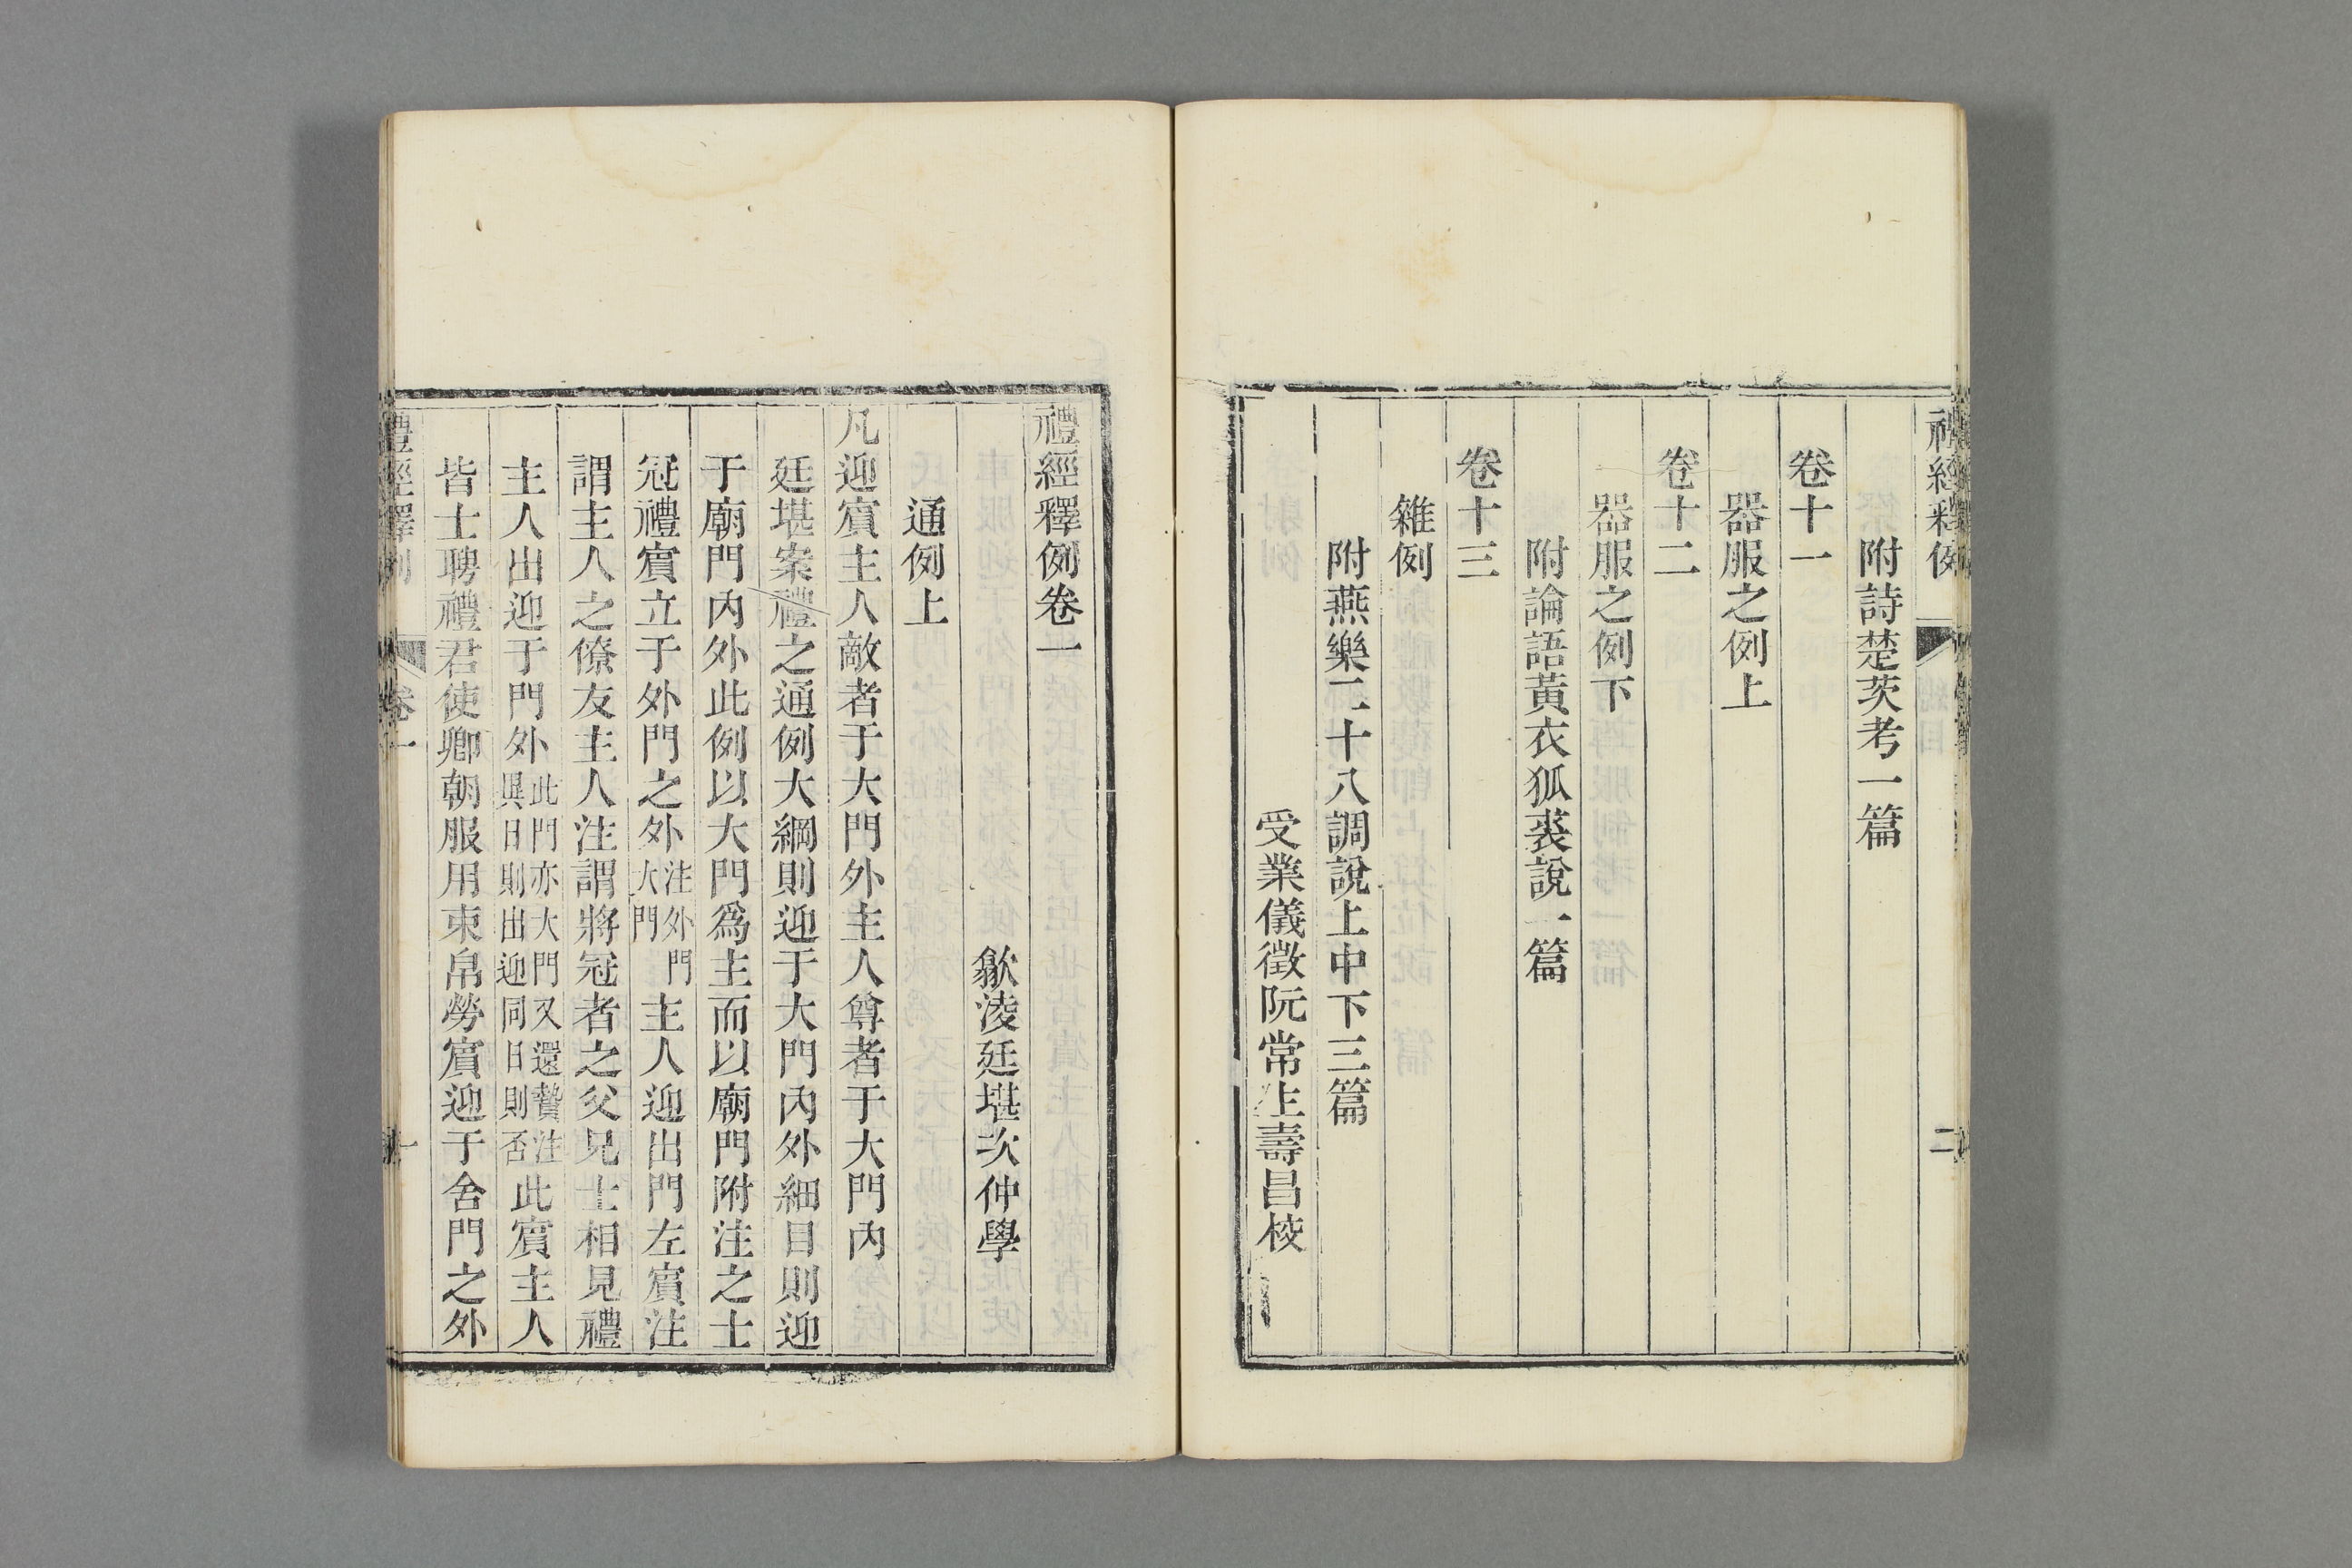 禮經釋例
二
附詩楚茨考一篇
卷十一
器服之例上
卷十二
器服之例下
附論語黃衣狐裘說一篇
卷十三
雜例
附燕樂二十八調說上中下三篇
受業儀徵阮常生壽昌校
禮經釋例卷一
歙淩廷堪次仲學
通例上
凡迎賓主人敵者于大門外主人尊者于大門內
廷堪案禮之通例大綱則迎于大門內外細目則迎
于廟門內外此例以大門爲主而以廟門附注之士
冠禮賓立于外門之外注外門大門主人迎出門左賓注
謂主人之僚友主人注謂將冠者之父兄士相見禮
主人出迎于門外此門亦大門又還贄注異日則出迎同日則否此賓主人
皆士聘禮君使卿朝服用束帛勞賓迎于舍門之外
禮經釋例
卷一
一